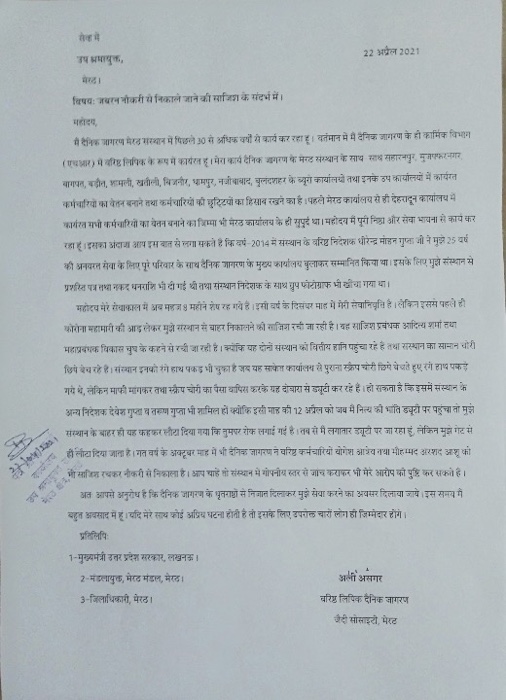 सेवा में
22 अप्रैल 2021
उप श्रमायुक्त,
मेरठ।
विषय: जबरन नौकरी से निकाले जाने की साजिश के संदर्भ में।
महोदय,
मै दैनिक जागरण मेरठ संस्थान में पिछले 30 से अधिक वर्षो से कार्य कर रहा हूं। वर्तमान में मै दैनिक जागरण के ही कार्मिक विभाग
(एचआर) में वरिष्ठ लिपिक के रूप में कार्यरत हूं। मेरा कार्य दैनिक जागरण के मेरठ संस्थान के साथ साथ सहारनपुर, मुजफ्फरनगर,
बागपत, बड़ौत, शामली, खतौली, बिजनौर, धामपुर, नजीबाबाद, बुलंदशहर के ब्यूरो कार्यालयों तथा इनके उप कार्यालयों में कार्यरत
कर्मचारियों का वेतन बनाने तथा कर्मचारियों की छुट्टियों का हिसाब रखने का है। पहली मेरठ कार्यालय से ही देहरादून कार्यालय में
कार्यरत सभी कर्मचारियों का वेतन बनाने का जिम्मा भी मेरठ कार्यालय के ही सुपुर्द था। महोदय मैं पूरी निष्ठा और सेवा भावना से कार्य कर
रहा हूं। इसका अंदाजा आप इस बात से लगा सकते है कि वर्ष-2014 में संस्थान के वरिष्ठ निदेशक धीरेन्द्र मोहन गुप्ता जी ने मुझे 25 वर्ष
की अनवरत सेवा के लिए पूरे परिवार के साथ दैनिक जागरण के मुख्य कार्यालय बुलाकर सम्मानित किया था। इसके लिए मुझे संस्थान से
प्रशस्ति पत्र तथा नकद धनराशि भी दी गई थी तथा संस्थान निदेशक के साथ ग्रुप फोटोग्राफ भी खींचा गया था।
महोदय मेरे सेवाकाल में अब महज 8 महीने शेष रह गये हैं। इसी वर्ष के दिसंबर माह में मेरी सेवानिवृत्ति है। लेकिन इससे पहले ही
कोरोना महामारी की आड़ लेकर मुझे संस्थान से बाहर निकालने की साजिश रची जा रही है। यह साजिश प्रबंधक आदित्य शर्मा तथा
महाप्रबंधक विकास चुघ के कहने से रची जा रही है। क्योंकि यह दोनों संस्थान को वित्तीय हानि पहुंचा रहे है तथा संस्थान का सामान चोरी
छिपे बेच रहे है। संस्थान इनको रंगे हाथ पकड़ भी चुका है जब यह साकेत कार्यालय से पुराना स्क्रैप चोरी छिपे बेचते हुए रंगे हाथ पकड़े
गये थे, लेकिन माफी मांगकर तथा स्क्रैप चोरी का पैसा वापिस करके यह दोबारा से ड्यूटी कर रहे है। हो सकता है कि इसमें संस्थान के
अन्य निदेशक देवेश गुप्ता व तरुण गुप्ता भी शामिल हो क्योंकि इसी माह की 12 अप्रैल को जब मै नित्य की भांति ड्यूटी पर पहुंचा तो मुझे
संस्थान के बाहर ही यह कहकर लौटा दिया गया कि तुमपर रोक लगाई गई है। तब से मै लगातार ड्यूटी पर जा रहा हूं, लेकिन मुझे गेट से
ही लौटा दिया जाता है। गत वर्ष के अक्टूबर माह में भी दैनिक जागरण ने वरिष्ठ कर्मचारियों योगेश आत्रेय तथा मौहम्मद अरशद आशू को
भी साजिश रचकर नौकरी से निकाला है। आप चाहे तो संस्थान में गोपनीय स्तर से जांच कराकर भी मेरे आरोप की पुष्टि कर सकते है।
अतः आपसे अनुरोध है कि दैनिक जागरण के धृतराष्ट्रों से निजात दिलाकर मुझे सेवा करने का अवसर दिलाया जाये। इस समय मै
बहुत अवसाद में हूं। यदि मेरे साथ कोई अप्रिय घटना होती है तो इसके लिए उपरोक्त चारों लोग ही जिम्मेदार होंगे।
प्रतिलिपि
1-मुख्यमंत्री उत्तर प्रदेश सरकार, लखनऊ।
2-मंडलायुक्त, मेरठ मंडल, मेरठ।
3-जिलाधिकारी, मेरठ।
अली असगर
वरिष्ठ लिपिक दैनिक जागरण
जैदी सोसाइटी, मेरठ